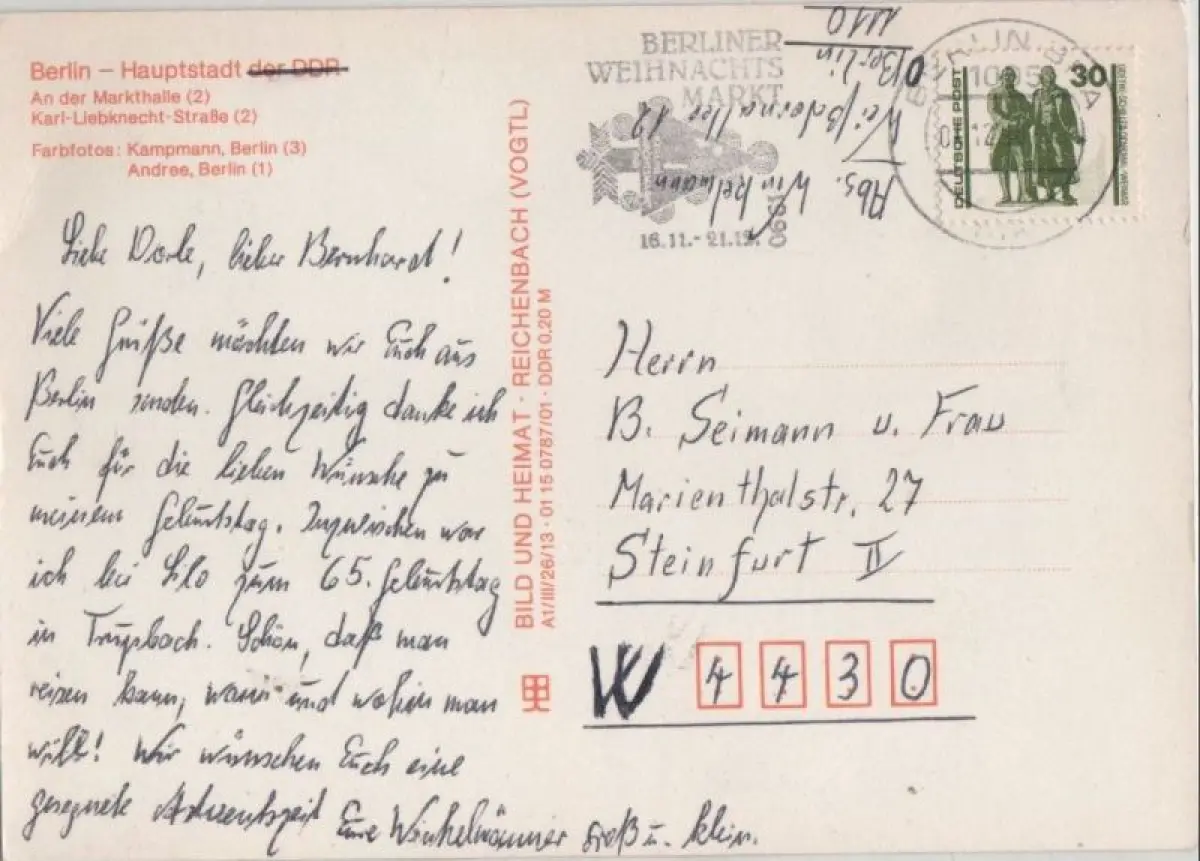 Berlin – Hauptstadt der DDR
An der Markthalle (2)
Karl-Liebknecht-Straße (2)
Farbfotos: Kampmann, Berlin (3)
Andree, Berlin (1)
Liebe Dorle, lieber Bernhard!
Viele Grüße möchten wir Euch aus
Berlin senden. Gleichzeitig danke ich
Euch für die lieben Wünsche zu
meinem Geburtstag. Inzwischen war
ich bei Lilo zum 65. Geburtstag
in . Schön, daß man
reisen kann, wann und wohin man
will! Wir wünschen Euch eine
gesegnete Adventszeit Eure Winkelmänner groß u. klein.
BILD UND HEIMAT · REICHENBACH (VOGTL)
A1/III/26/13 · 01 15 0787/01 · DDR 0,20 M
BERLINER
WEIHNACHTS
MARKT
16.11.-21.12.
1990
Abs. Winkelmann
12
O Berlin
1110
BERLIN
1085
DEUTSCHE POST
30
Herrn
B. Seimann u. Frau
Marienthalstr. 27
Steinfurt II
W 4430